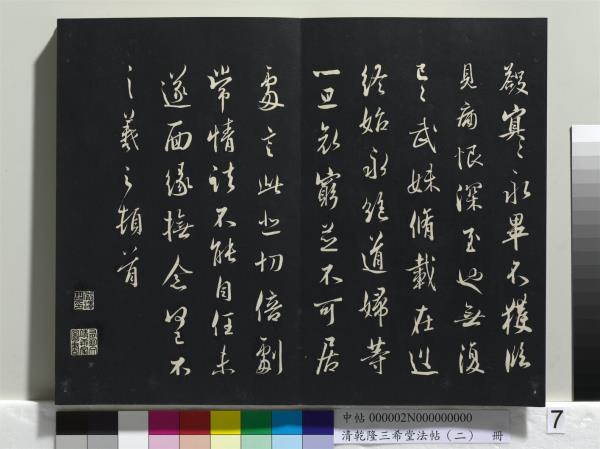 永畢不獲臨
見痛恨深至也無復
已已武妹脩載在
終始永絕道婦等
一旦哀窮並不可居
處言此悲切倍劇
常情諸不能自任未
遂面緣撫念不
羲之頓首
中帖 000002N000000000
清乾隆三希堂法帖（二） 冊
7